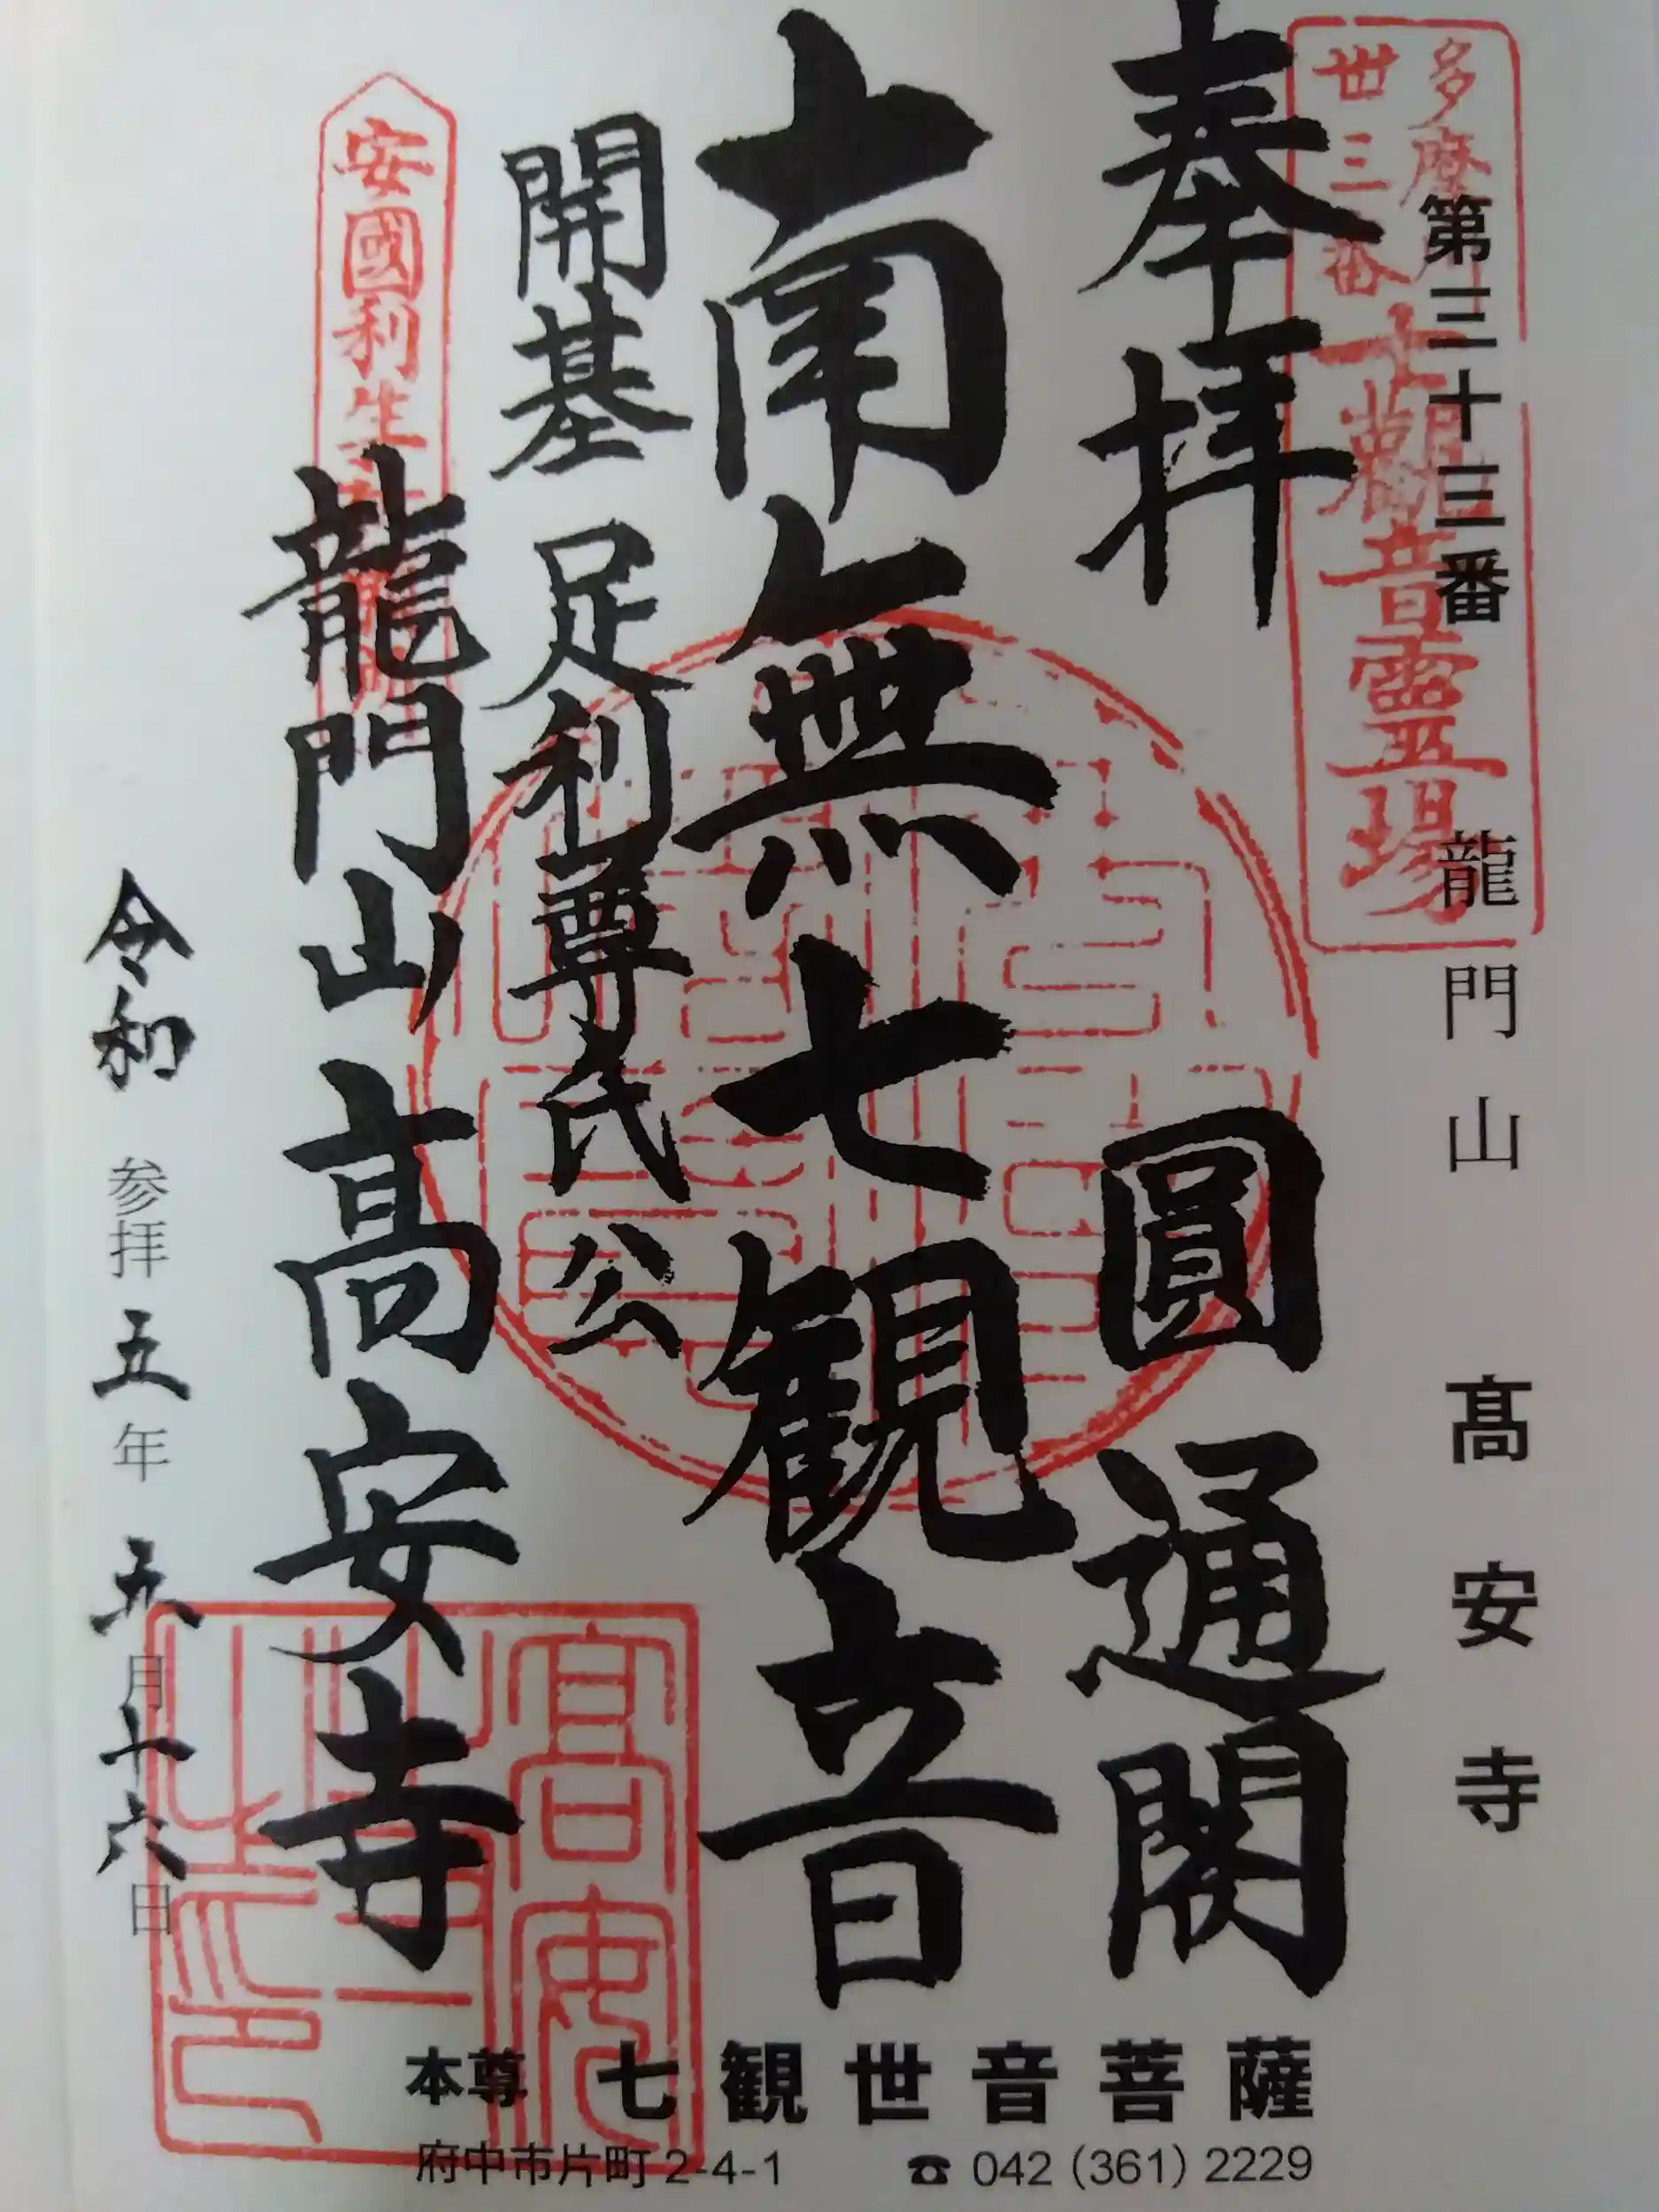 多摩川
卅三番
十観音霊場
第三十三番
龍門山 髙安寺
奉拝
圓通閣
南無七観音
開基 足利尊氏公
安國利生
龍門山高安寺
令和 参拝 五年 五月十六日
本尊 七観世音菩薩
府中市片町2-4-1 ☎ 042（361）2229